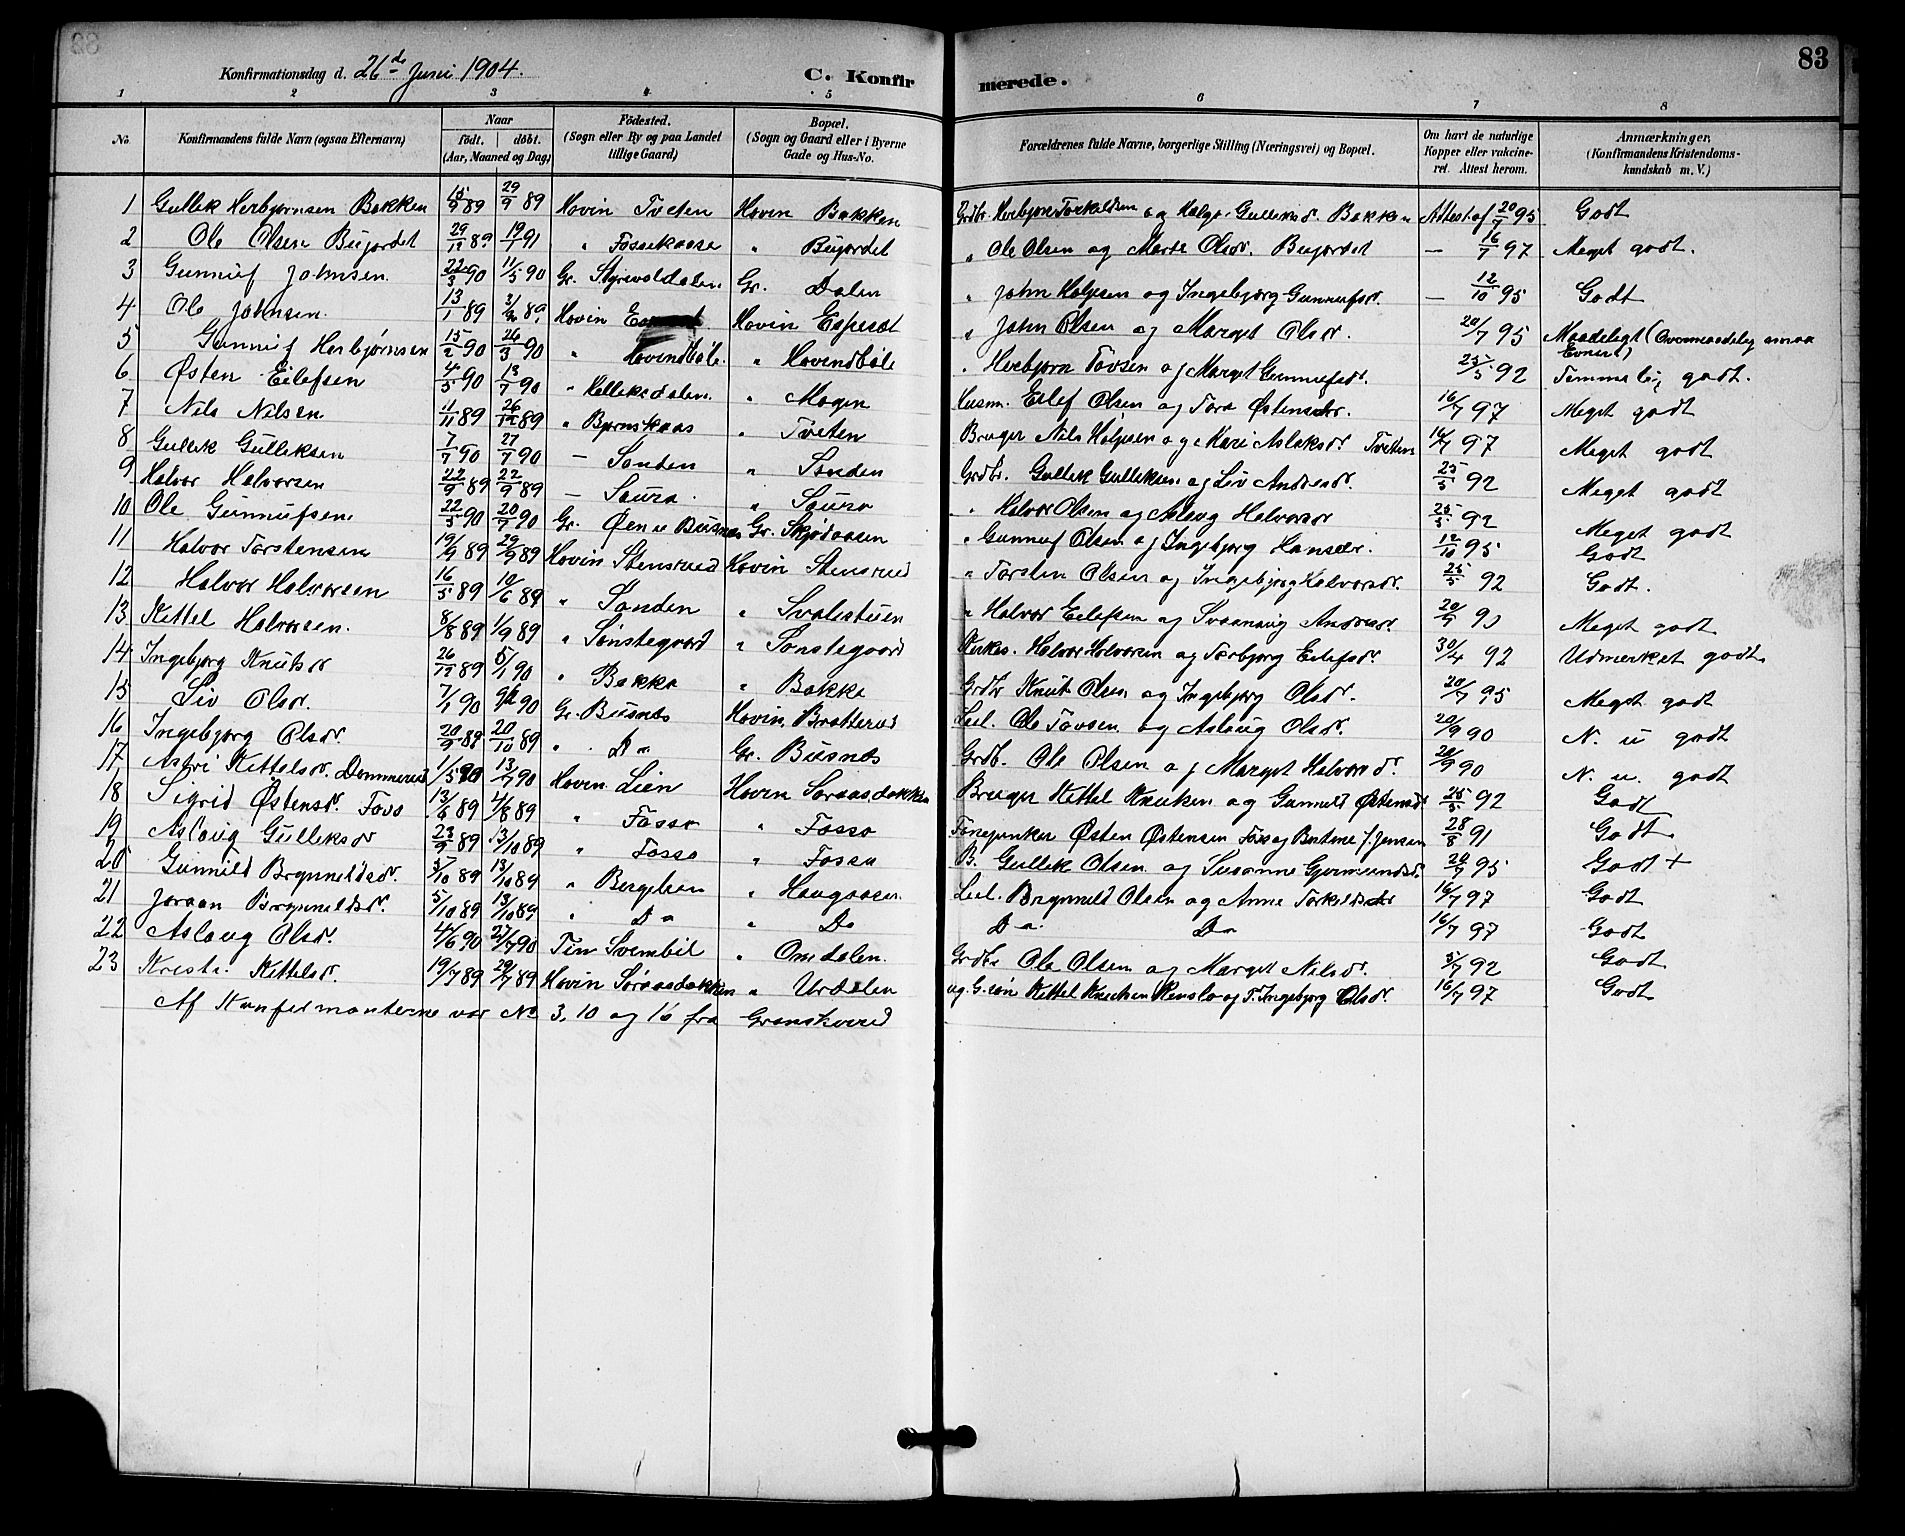 83
Konfirmationsdag d. 26de Juni 1904. C. Konfirmerede.
1 2 3 4 5 6 7 8
No. Konfirmandens fulde Navn (ogsaa Efternavn) Naar födt. döbt. (Aar, Maaned og Dag) Födested. (Sogn eller By og paa Landet tillige Gaard) Bopæl. (Sogn og Gaard eller i Byerne Gade og Hus-No. Forældrenes fulde Navne, borgerlige Stilling (Næringsvei) og Bopæl. Om havt de naturlige Kopper eller vakcineret. Attest herom. Anmærkninger, (Konfirmandens Kristendomskundskab m. V.)
1 Gullek Herbjørnsen Bakken 15/9 89 29/9 89 Hovin Tveten Hovin Bakken Grdbr. Herbjørn Torkildsen og Helge Gulleksd. Bakken Attest af 20/7 95 Godt
2 Ole Olsen Bujordet 29/12 89 19/1 91 " Fossekaasa " Bujordet " Ole Olsen og Marte Olsdr. Bujordet — 16/7 97 Meget godt.
3 Gunnuf Johnsen. 22/3 90 11/5 90 Gr. Styrevoldalen Gr. Dalen " John Halvsen og Ingebjørg Gunnufsdr. — 12/10 95 Godt
4 Ole Johnsen. 13/1 89 89 Hovin Hovin Espeset " John Olsen og Marget Olsdr. 20/7 95 Maadeligt (Overmaadelig smaa Evner)
5 Gunnuf Herbjørnsen 15/2 90 26/3 90 " Hovindbøle. " Hovindbøle " Herbjørn Tovsen og Marget Gunnufsdr. 25/5 92 Temmelig godt.
6 Østen Eilefsen 4/5 90 13/7 90 " Helleksdalen " Mogen Husm. Eilef Olsen og Tora Østensdr. 16/7 97 Meget godt
7 Nils Nilsen 11/11 89 26/12 89 " Bjørnskaas " Tveten Bruger Nils Halvsen og Mari Aslaksdr. Tveten 16/7 97 Meget godt
8 Gullek Gulleksen 7/7 90 27/7 90 — Sanden " Sanden Grdbr. Gullek Gulleksen og Liv Andersdr. 25/5 92 Meget godt
9 Halvor Halvorsen 22/9 89 22/9 89 — Saura. " Saura " Halvor Olsen og Aslaug Halvorsdr 25/5 92 Meget godt
10 Ole Gunnufsen 22/5 90 20/7 90 Gr. Øen u Busnes Gr. Skjødaasen " Gunnuf Olsen og Ingebjørg Hansdr. 12/10 95 Godt
11 Halvor Torstensen 19/9 89 29/9 89 Hovin Stensrud Hovin Stensrud " Torsten Olsen og Ingebjørg Halvorsdr. 25/5 92 Godt.
12 Halvor Halvorsen 16/5 89 10/6 89 " Sanden " Svalestuen " Halvor Eilefsen og Svaanaug Andersdr. 20/9 90 Meget godt
13 Kittel Halvorsen. 8/8 89 1/9 89 " Sønstegaard " Sønstegaard Kirkes. Halvor Halvorsen og Tarbjørg Eilefsdr. 30/4 92 Udmerket godt
14 Ingebjørg Knutsdr 26/12 89 5/1 90 " Bakka " Bakka Grdbr Knut Olsen og Ingebjørg Olsdr. 20/7 95 Meget godt
15 Liv Olsdr. 7/1 90 90 Gr. Busnes Hovin Bratterud Leil. Ole Tovsen og Aslaug Olsdr. 20/9 90 N. u godt
16 Ingebjørg Olsdr. 20/9 89 20/10 89 " Do Gr. Busnes Grdb. Ole Olsen og Marget Halvorsdr. 20/9 90 N. u. godt
17 Astri Kittelsdr. Demmerud 1/5 90 13/7 90 Hovin Lien Hovin Søraasdokken Bruger Kittel Knutsen og Gunnild Østensdr 25/5 92 Godt
18 Sigrid Østensdr. Foss 13/6 89 4/8 89 " Fosso " Fosso Østen Østensen Foss og Bertine J. Jensen 28/8 91 Godt
19 Aslaug Gulleksdr 23/9 89 13/10 89 " Fosso " Fosso B. Gullek Olsen og Susanne Gjermundsdr. 20/7 95 Godt +
20 Gunnild Brynnildsdr. 5/10 89 13/10 89 " Bergelien " Haugaasen Leil. Brynnild Olsen og Anne Torkildsdr 16/7 97 Godt
21 Joraan Brynnildsdr. 5/10 89 13/10 89 " Do " Do Do Do 16/7 97 Godt
22 Aslaug Olsdr. 4/6 90 27/7 90 Tin Svembil " Omdalen. Grdbr Ole Olsen og Marget Nilsdr. 5/7 92 Godt
23 Kristi Kittelsdr. 19/7 89 29/7 89 Hovin Søraasdokken " Urdalen ug. G. søn Kittel Knutsen Renslo og P. Ingebjørg Olsdr. 16/7 97 Godt
Af Konfirmanterne var No 3, 10 og 16 fra Gransherred